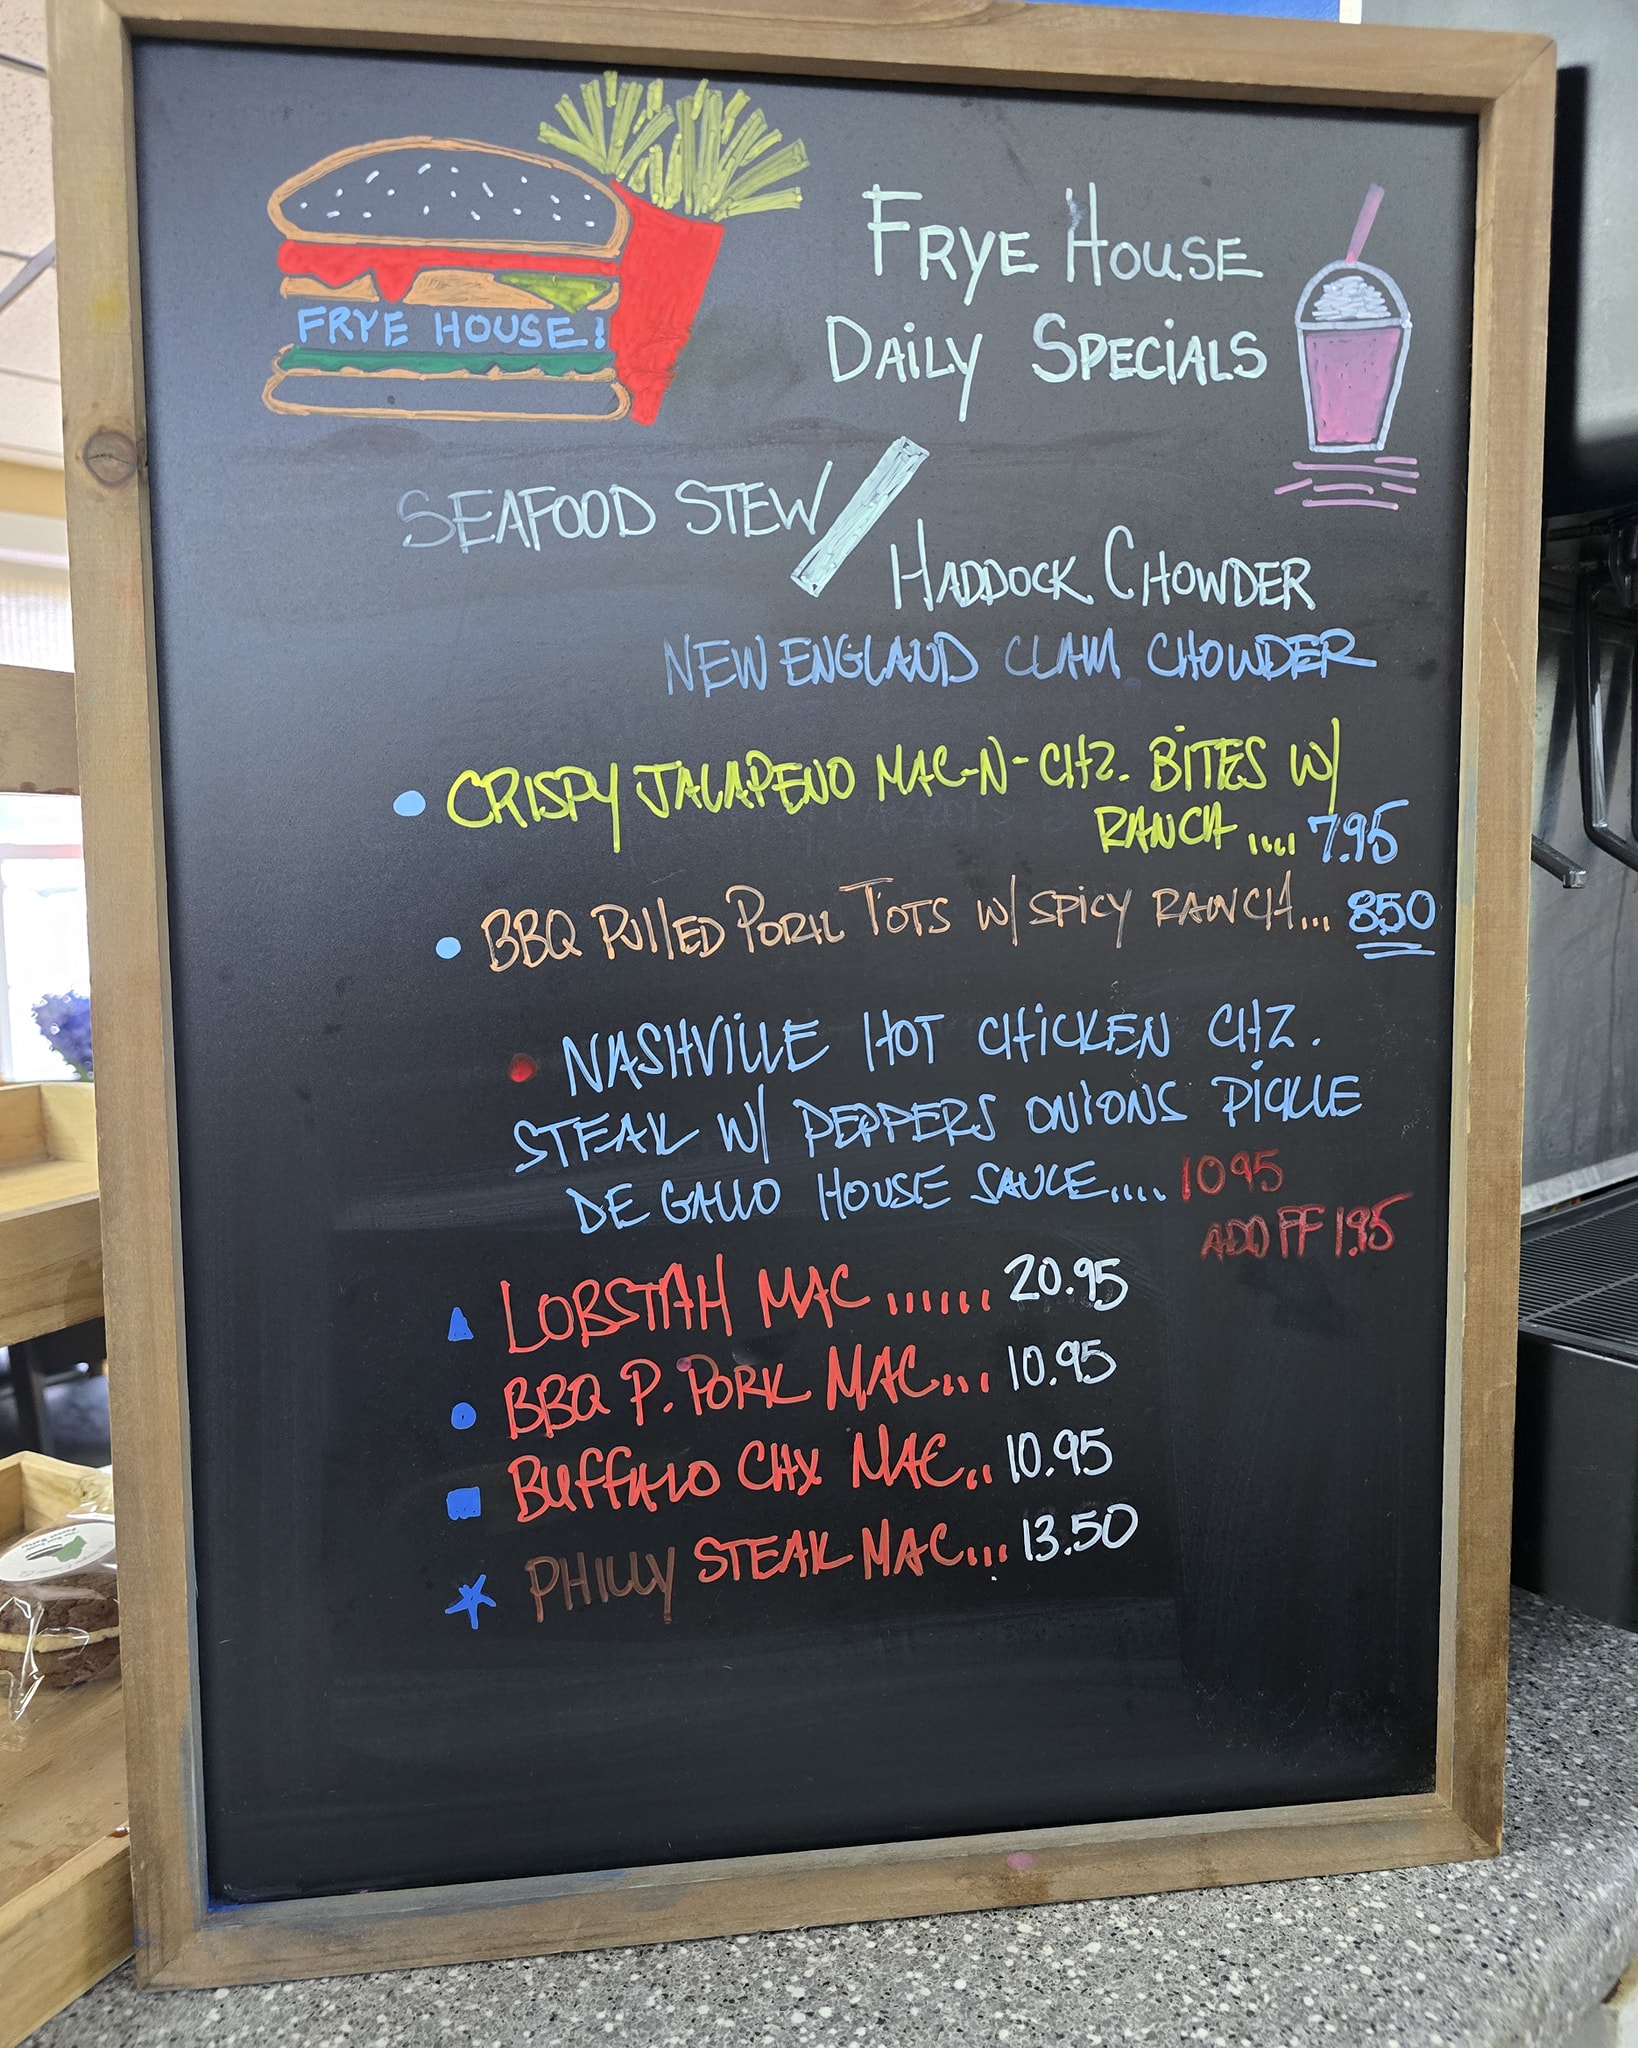 FRYE HOUSE!
FRYE HOUSE
DAILY SPECIALS
SEAFOOD STEW
HADDOCK CHOWDER
NEW ENGLAND CLAM CHOWDER
CRISPY JALAPENO MAC-N-CHZ. BITES W/
RANCH .... 7.95
BBQ PULLED PORK TOTS W/ SPICY RANCH... 850
NASHVILLE HOT CHICKEN CHZ.
STEAK W/ PEPPERS ONIONS PICKLE
DE GALLO HOUSE SAUCE.... 1095
ADD FF 1.95
LOBSTAH MAC ...... 20.95
BBQ P. PORK MAC... 10.95
BUFFALO CHX MAC.. 10.95
PHILLY STEAK MAC... 13.50